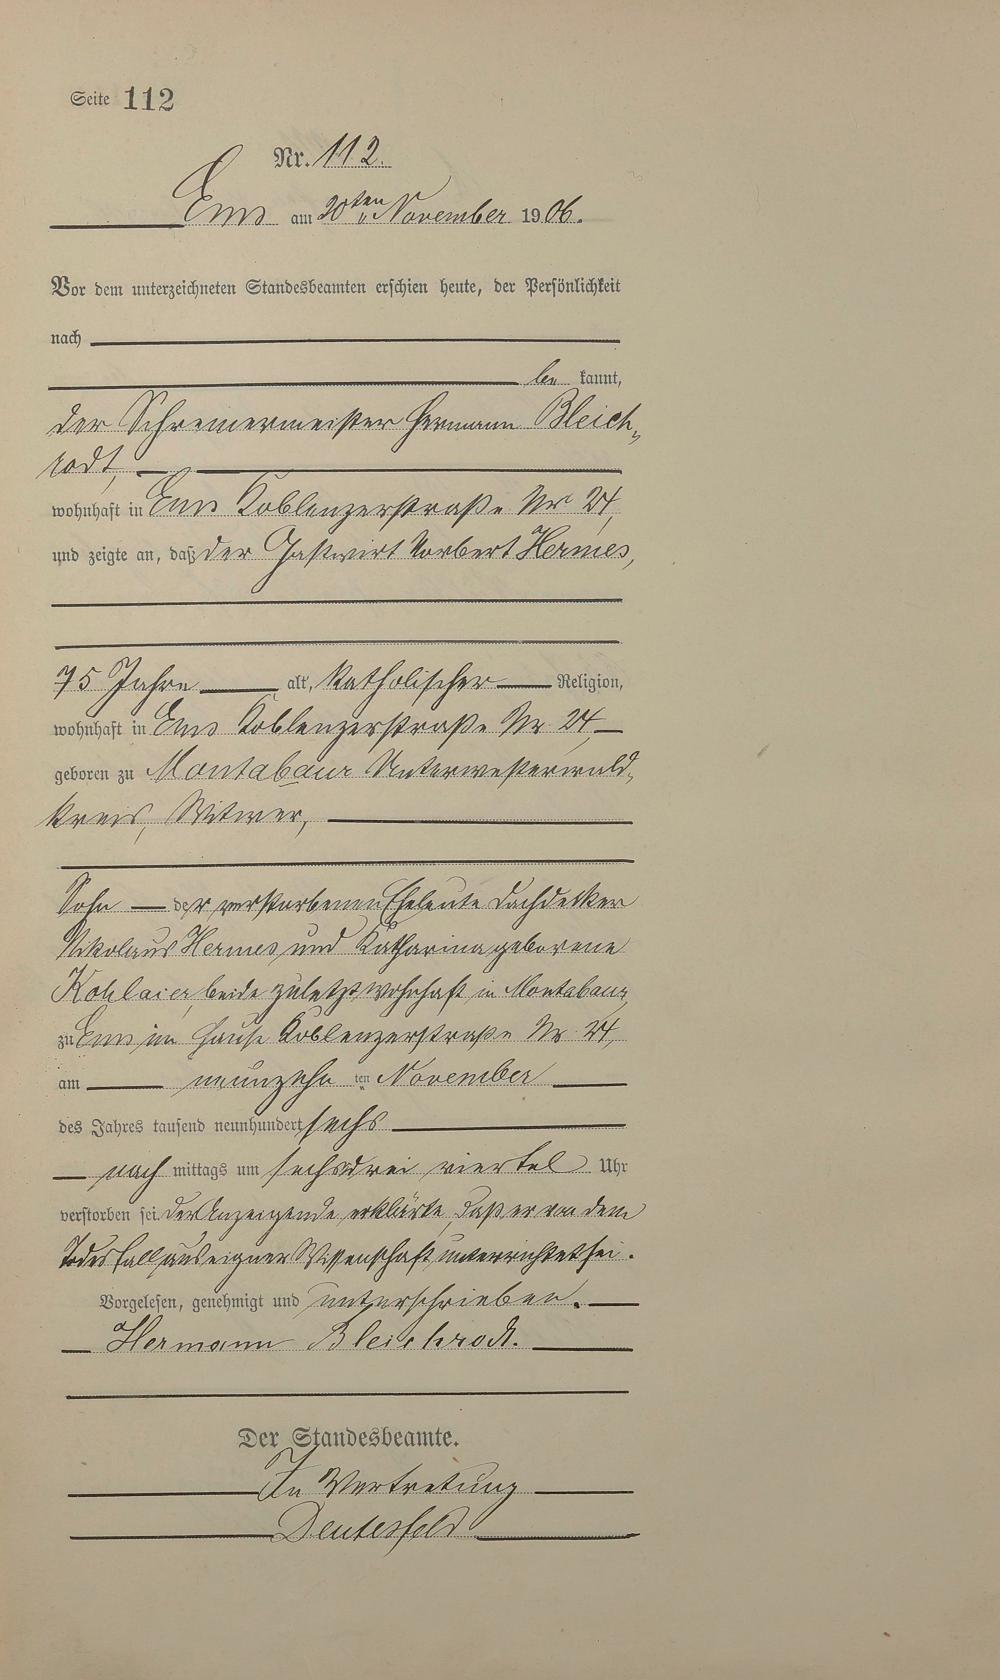 Seite 112
Nr. 112.
Ems am 20ten November 1906.
Vor dem unterzeichneten Standesbeamten erschien heute, der Persönlichkeit
nach
be kannt,
der Schreinermeister Hermann Bleich-
rodt,
wohnhaft in Ems Koblenzerstraße Nr 24,
und zeigte an, daß der Gastwirt Norbert Hermes,
75 Jahre alt, katholischer Religion,
wohnhaft in Ems Koblenzerstraße Nr. 24,
geboren zu Montabaur Unterwesterwald-
kreis, Witwer,
Sohn der verstorbenen Eheleute Dachdecker
Nikolaus Hermes und Katharina geborene
beide zuletzt wohnhaft in Montabaur,
zu Ems im Hause Koblenzerstraße Nr. 24,
am neunzehn ten November
des Jahres tausend neunhundert sechs
nach mittags um sechs drei viertel Uhr
verstorben sei. Der Anzeigende erklärte, daß er von dem
Todesfall aus eigner Wissenschaft unterrichtet sei.
Vorgelesen, genehmigt und unterschrieben.
Hermann Bleichrodt.
Der Standesbeamte.
In Vertretung